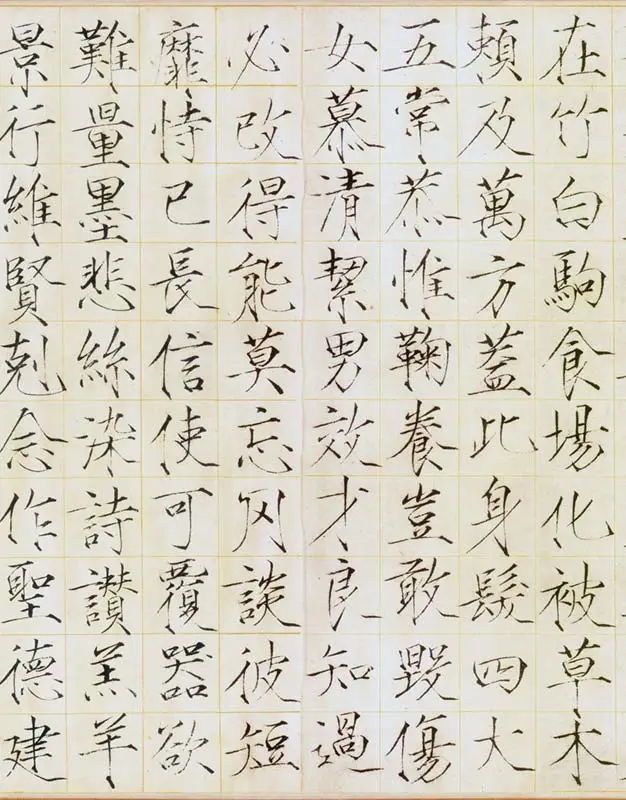 在竹白駒食場化被草木
頼及萬方蓋此身髮四大
五常恭惟鞠養豈敢毀傷
女慕清絜男效才良知過
必改得能莫忘罔談彼短
靡恃己長信使可覆器欲
難量墨悲絲染詩讚羔羊
景行維賢剋念作聖德建